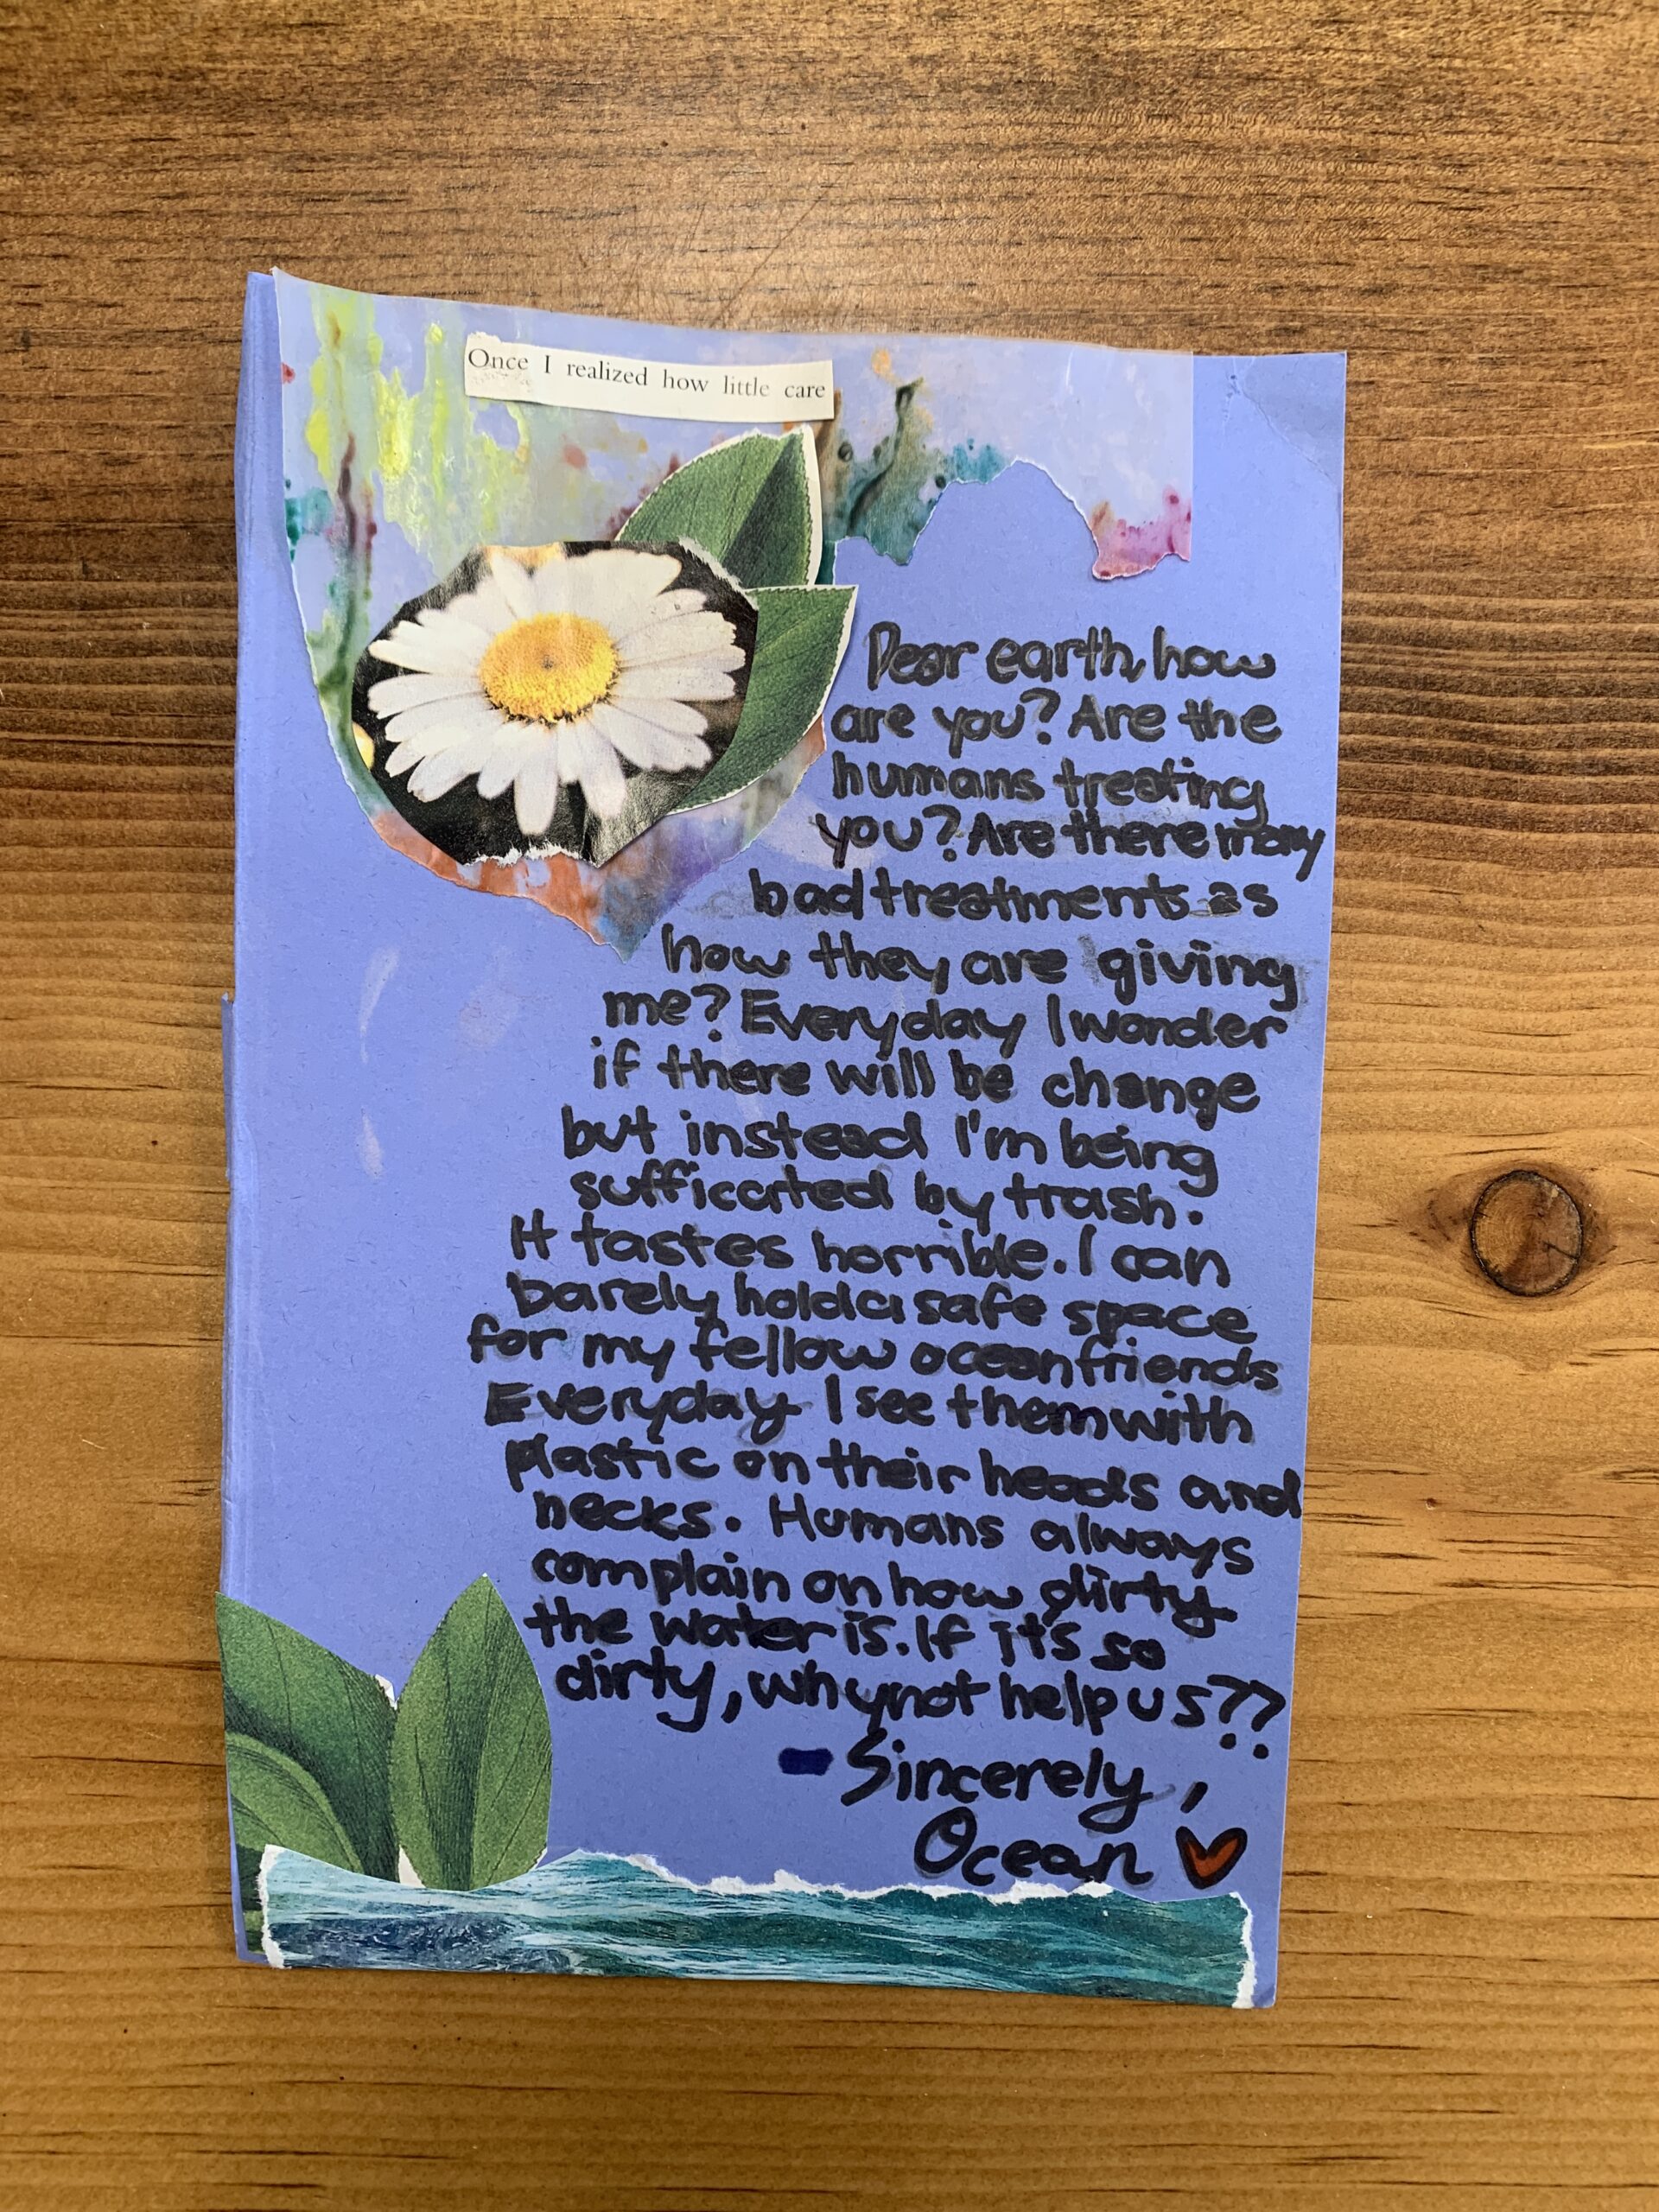 Once I realized how little care
Dear earth, how
are you? Are the
humans treating
you? Are there many
bad treatments as
how they are giving
me? Everyday I wonder
if there will be change
but instead I'm being
sufficated by trash.
It tastes horrible. I can
barely hold a safe space
for my fellow ocean friends
Everyday I see them with
plastic on their heads and
necks. Humans always
complain on how dirty
the water is. If it's so
dirty, why not help us??
- Sincerely,
Ocean